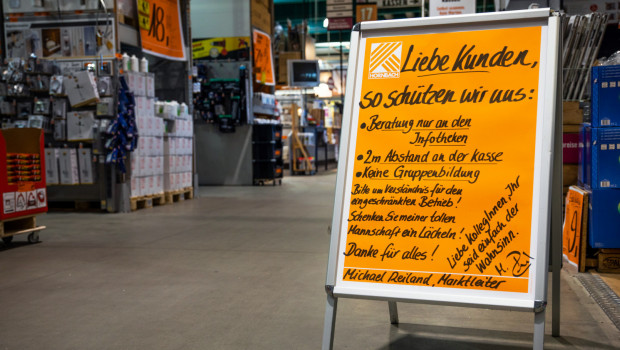 HORNBACH
Liebe Kunden,
so schützen wir uns:
• Beratung nur an den
Infotheken
• 2m Abstand an der Kasse
• Keine Gruppenbildung
Bitte um Verständnis für den
eingeschränkten Betrieb!
Schenken Sie meiner tollen
Mannschaft ein Lächeln!
Danke für alles!
Liebe KollegInnen, Ihr
seid einfach der
Wahnsinn.
Michael Reiland, Marktleiter